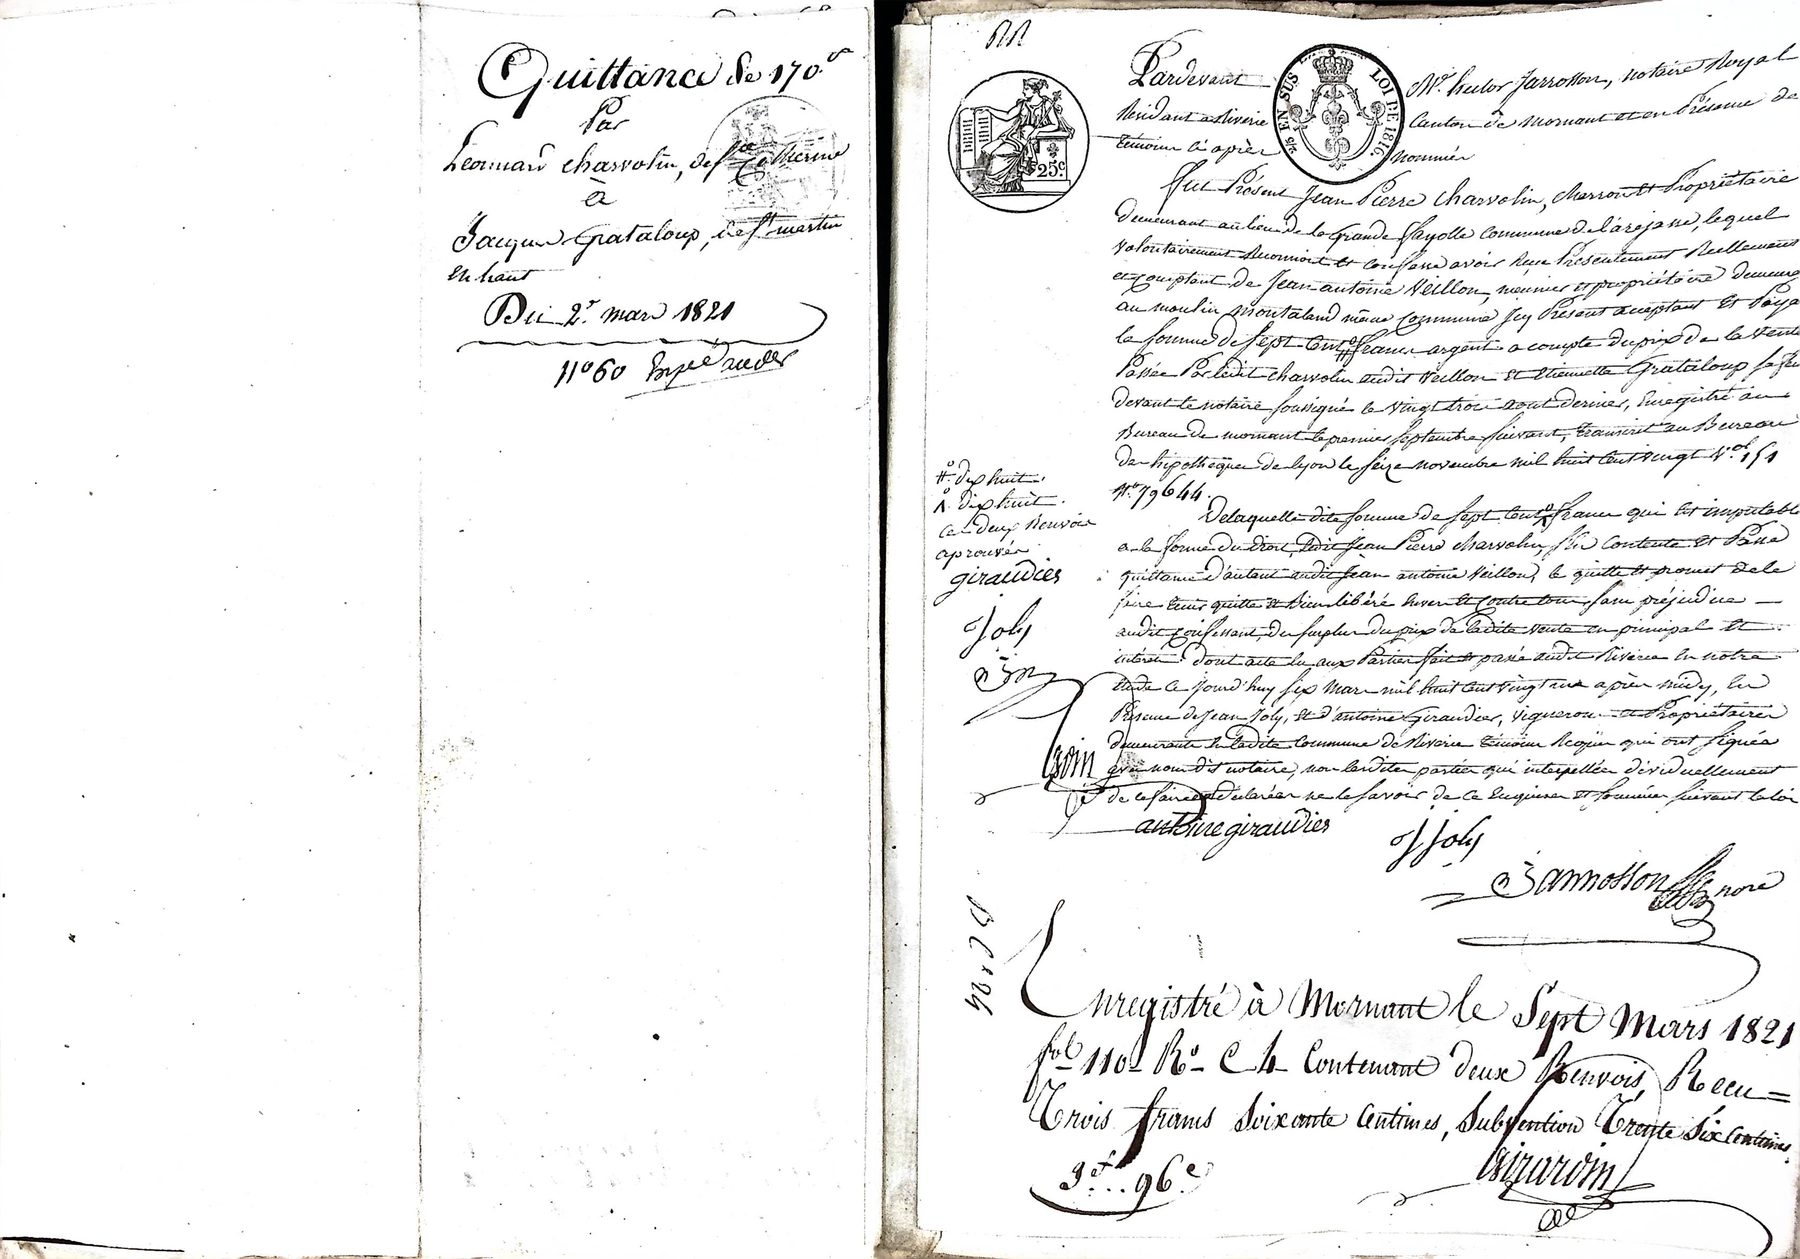 Quittance de 170f
Par
Léonnard charvolin, de Ste Catherine
à
Jacques Grataloup, de St martin
en haut
Du 2r. mars 1821
No 60 Expé
25c
25 EN SUS LOI DE 1816.
Pardevant Me. hector Jarrosson, notaire Royal
Résidant a Riverie Canton de mornant et en Présence de
témoins ci après nommés
fut Présent Jean Pierre charvolin, charron et Propriétaire
demeurant au lieu de la Grande fayolle Commune de Larajasse, lequel
volontairement reconnoit et confesse avoir Reçu Présentement Réellement
et comptant de Jean antoine Veillon, meunier et propriétaire demeurant
au moulin montaland même Commune Icy Présent acceptant et Payant
la somme de sept Cent francs argent a compte du prix de la vente
Passée Par ledit charvolin audit Veillon et Etiennette Grataloup sa fe
devant le notaire soussigné le vingt trois aout dernier, Enregistré au
Bureau de mornant le premier septembre suivant, transcrit au Bureau
des hipothèques de lyon le seize novembre mil huit Cent vingt Vol. 151
No. 79644.
Delaquelle dite somme de sept Cent francs qui est imputable
a la forme du droit, ledit Jean Pierre charvolin, se Contente et Passe
quittance d'autant audit Jean antoine Veillon, le quitte et promet de le
faire tenir quitte et bien libéré envers et contre tous, sans préjudice
audit Confessant, du surplus du prix de ladite vente en principal et
intérêts. dont acte lu aux Parties fait et passé audit Riverie en notre
étude Ce jourd'huy six mars mil huit Cent vingt un après midy, En
Présence de Jean Joly, et d'antoine Giraudier, vignerons et Propriétaires
demeurants En ladite Commune de Riverie témoins Requis qui ont signés
avec nous dit notaire, non lesdites parties qui interpellées dividuellement
de ce faire ont déclarées ne le savoir de Ce Enquises et sommées suivant la loi
#. dix huit.
Λ. dix huit.
ces deux Renvois
aprouvés
giraudier
J Joly
antoine giraudier
J Joly
Jarrosson nore
Enregistré à Mornant le Sept Mars 1821
fol 110 Ro C 4 Contenant deux Renvois, Reçu =
Trois francs Soixante Centimes, Subvention Trente Six Centimes.
3f... 96c
Girardin